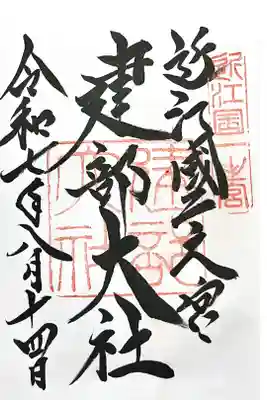 近江國一之宮
建部大社
令和七年八月十四日
近江国一之宮
建部大社